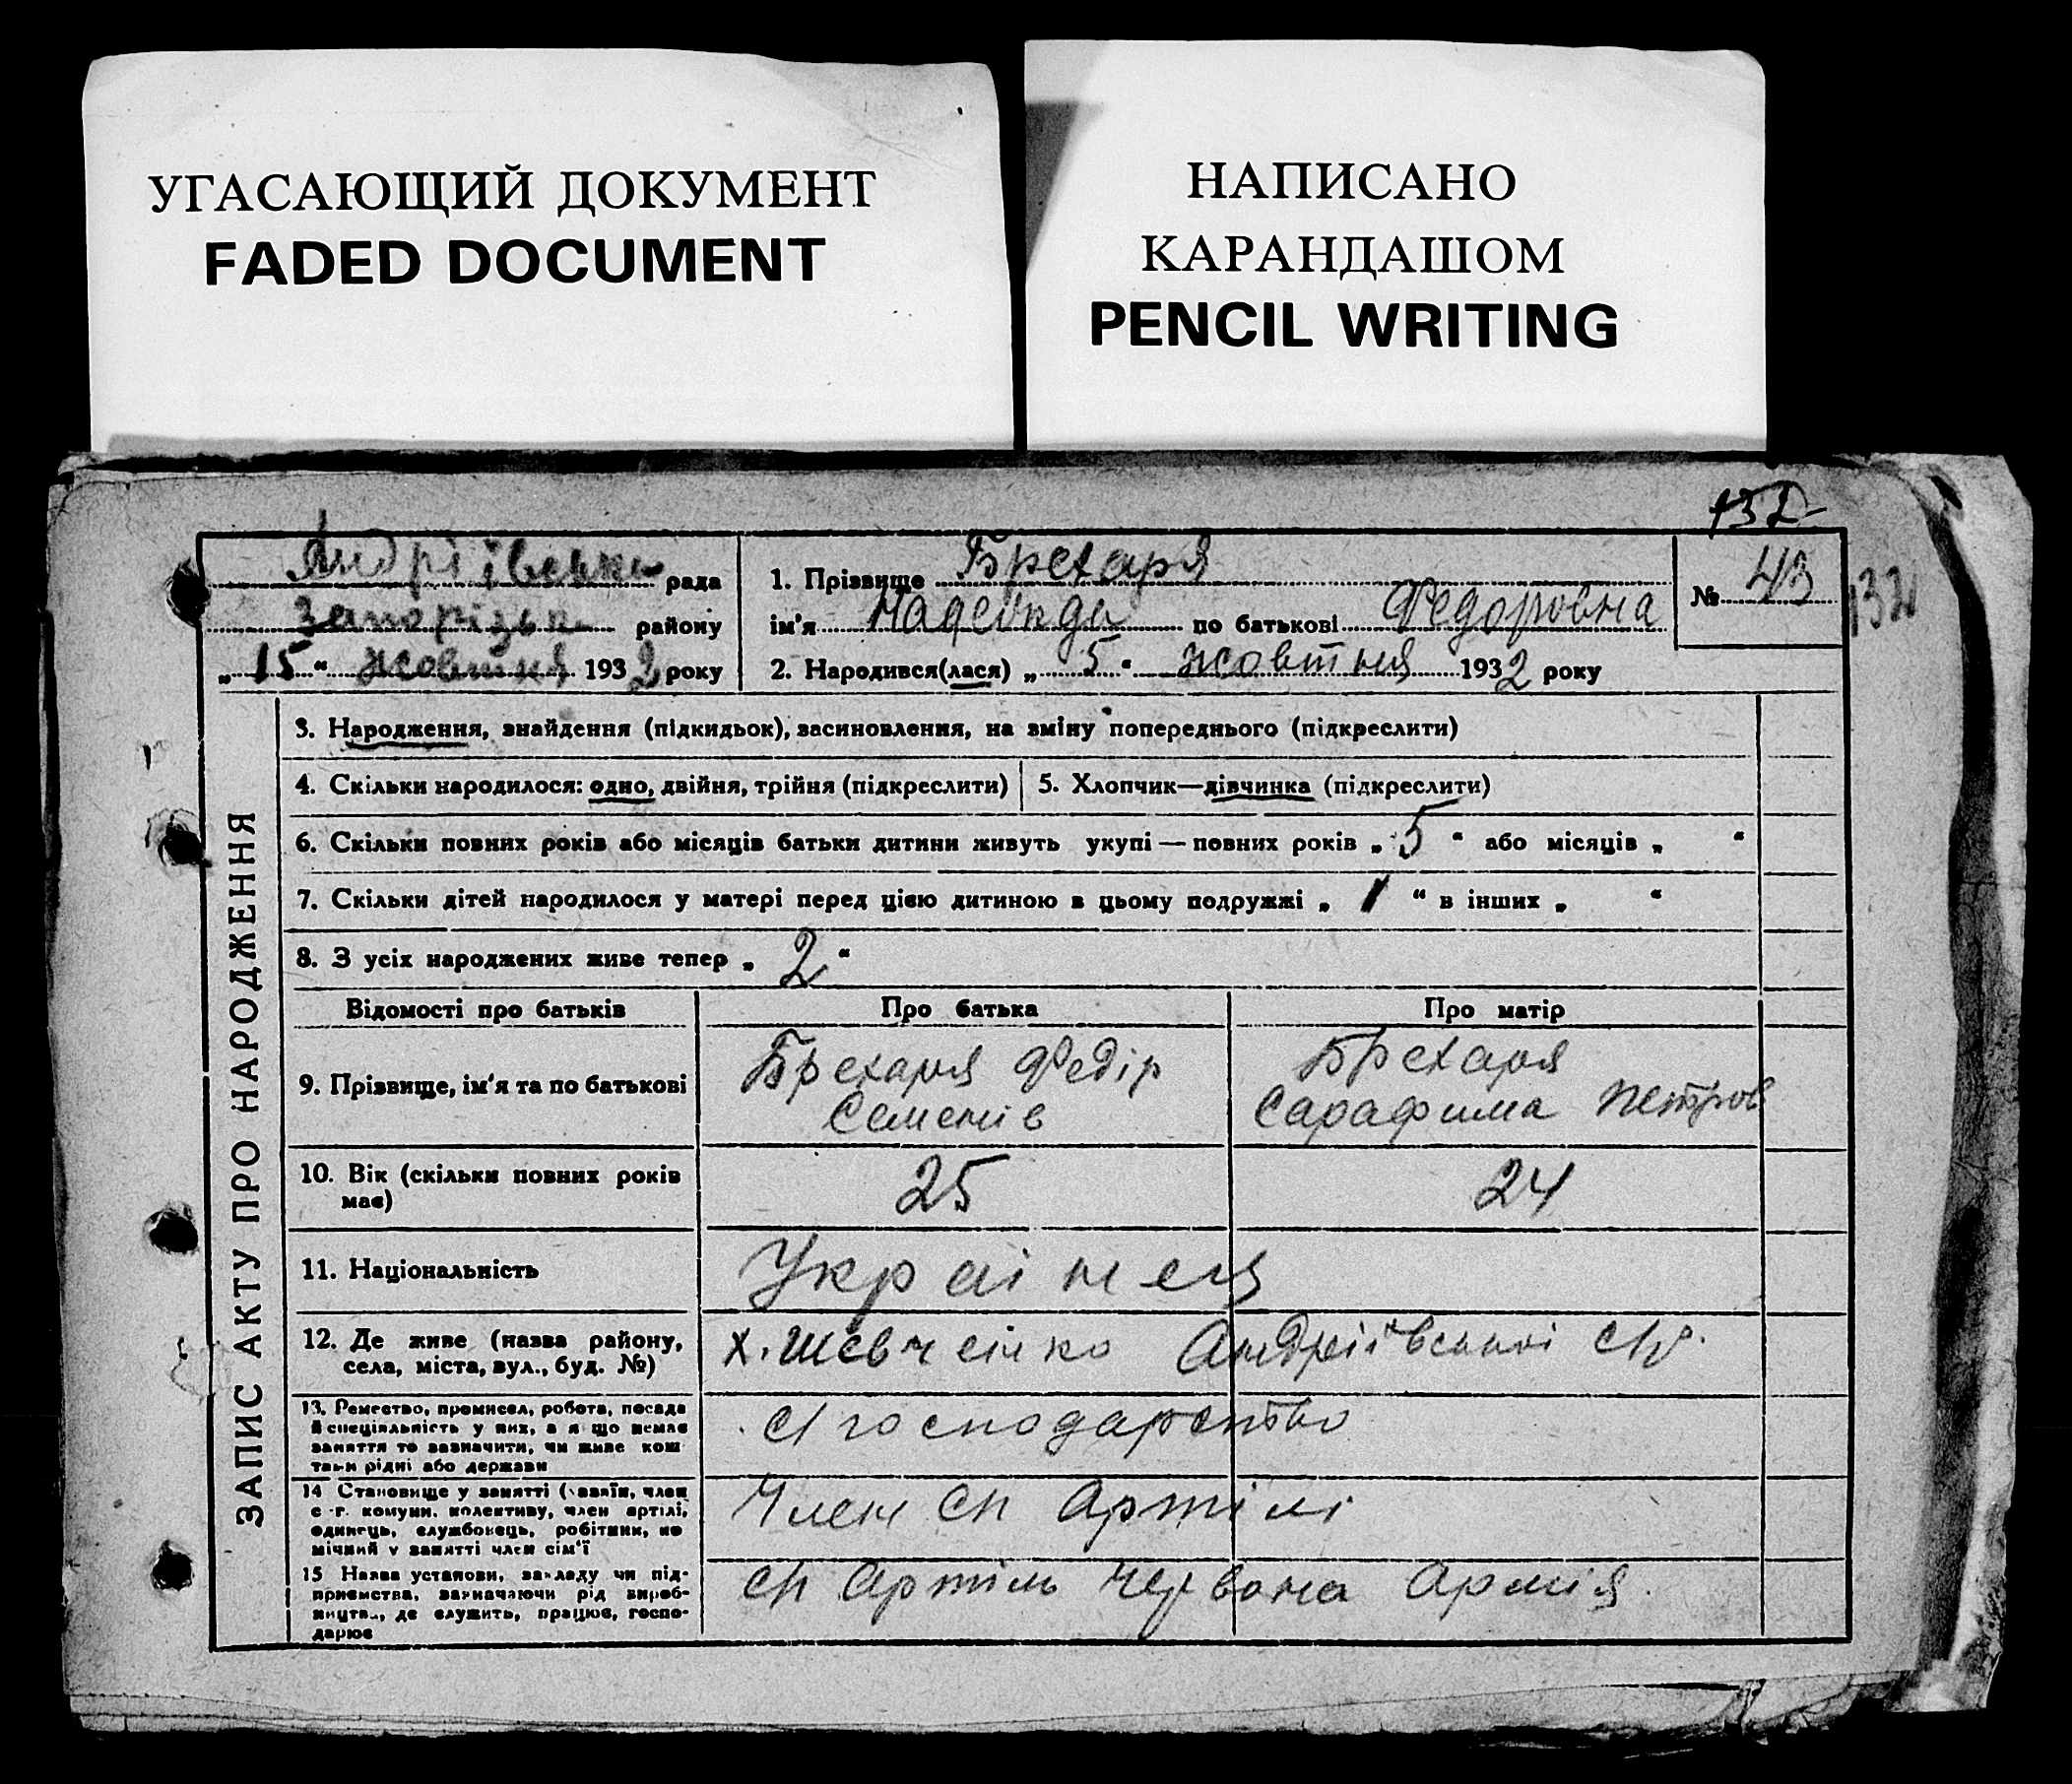 УГАСАЮЩИЙ ДОКУМЕНТ
FADED DOCUMENT
НАПИСАНО
КАРАНДАШОМ
PENCIL WRITING
132
Андріївська рада
Запорізьк району
„15“ жовтня 1932 року
1. Прізвище Брехаря
ім'я Надежда по батькові Федоровна
2. Народився(лася) „5“ жовтня 1932 року
№ 43
132
ЗАПИС АКТУ ПРО НАРОДЖЕННЯ
3. Народження, знайдення (підкидьок), засиновлення, на зміну попереднього (підкреслити)
4. Скільки народилося: одно, двійня, трійня (підкреслити)
5. Хлопчик—дівчинка (підкреслити)
6. Скільки повних років або місяців батьки дитини живуть укупі — повних років „5“ або місяців „ “
7. Скільки дітей народилося у матері перед цією дитиною в цьому подружжі „1“ в інших „ “
8. З усіх народжених живе тепер „2“
Відомості про батьків
Про батька
Про матір
9. Прізвище, ім'я та по батькові
Брехаря Федір
Семенів
Брехаря
Сарафима Петров
10. Вік (скільки повних років
має)
25
24
11. Національність
Украінец
12. Де живе (назва району,
села, міста, вул., буд. №)
х. Шевченко Андріївської с/р.
13. Ремество, промисел, робота, посада
й спеціяльність у них, а якщо немає
заняття то зазначити, чи живе кош
тами рідні або держави
с/господарство
14 Становище у занятті (хазяїн, член
с.-г. комуни, колективу, член артілі,
одинець, службовець, робітник, по
мічний у занятті член сім'ї
Член сг Артілі
15 Назва установи, закладу чи під-
приємства, зазначаючи рід вироб-
ництва, де служить, працює, госпо-
дарює
сг Артіль Червона Армія.